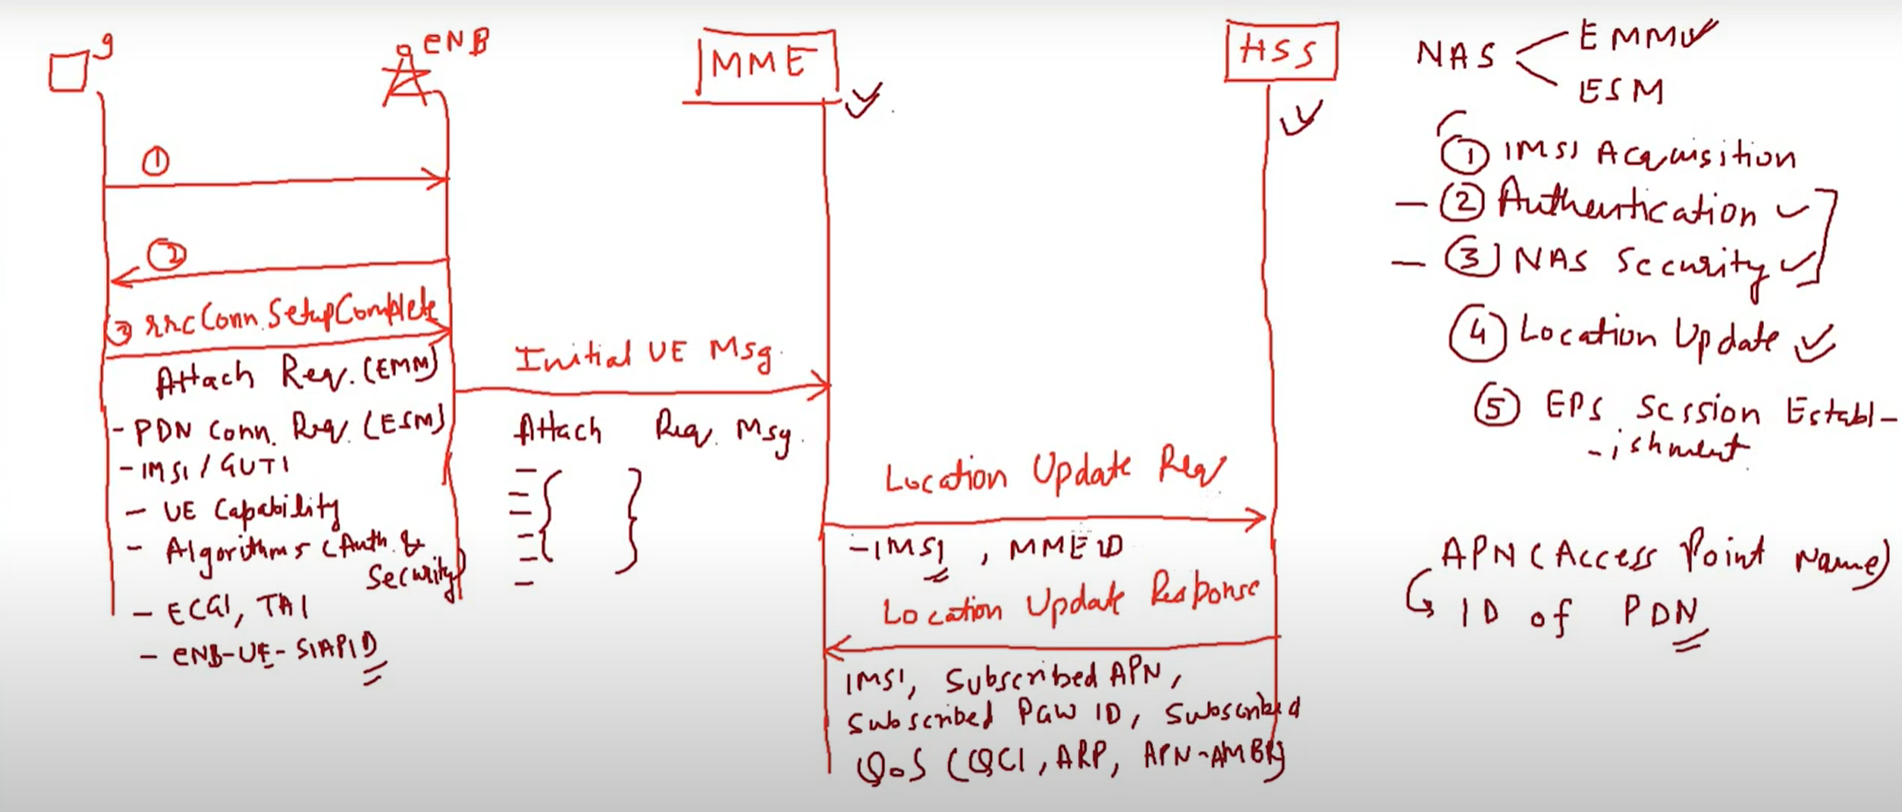 eNB
MME
HSS
①
②
③ rrcConn.SetupComplete
Attach Req. (EMM)
- PDN Conn. Req. (ESM)
- IMSI / GUTI
- UE Capability
- Algorithms (Auth. &
Security)
- ECGI, TAI
- eNB-UE-S1APID
Initial UE Msg.
Attach Req. Msg.
Location Update Req
- IMSI, MME ID
Location Update Response
IMSI, Subscribed APN,
Subscribed PGW ID, Subscribed
QoS (QCI, ARP, APN-AMBR)
NAS
EMM
ESM
① IMSI Acquisition
- ② Authentication
- ③ NAS Security
④ Location Update
⑤ EPS Session Establ-
-ishment
APN (Access Point Name)
ID of PDN